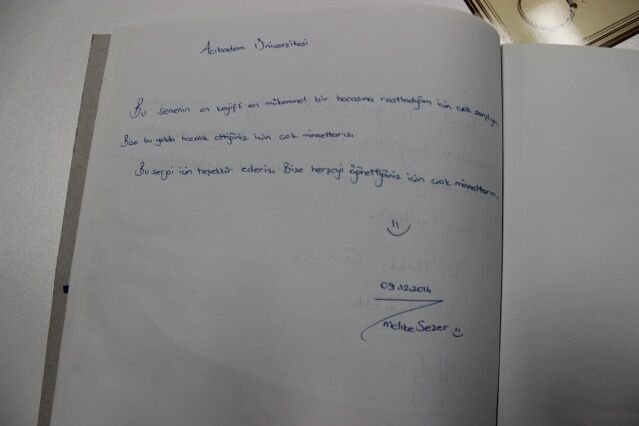 Acıbadem Üniversitesi
Bu senenin en keyifli en mükemmel bir hocasına rastladığım için çok şanslıyım
Bize bu yolda hocalık ettiğiniz için çok minnettarız.
Bu sergi için teşekkür ederiz. Bize herşeyi öğrettiğiniz için çok minnettarım
09.12.2016
Melike Sezer